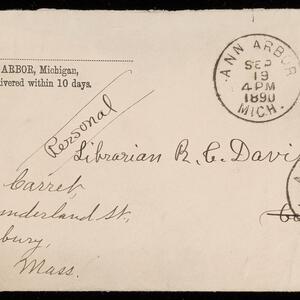 ARBOR, Michigan,
livered within 10 days.
ANN ARBOR
SEP
19
4 PM
1890
MICH.
Personal
Librarian R. C. Davi
Carret,
nderland St,
bury,
Mass.